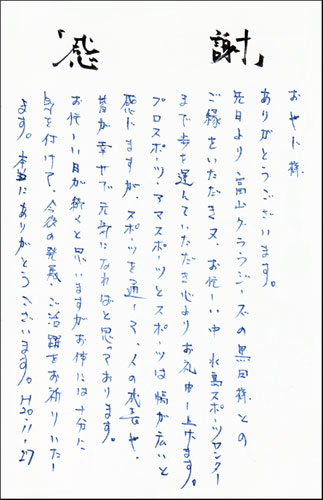 「感謝」
おやじ様
ありがとうございます。
先日より高山グラウジーズの黒田様との
ご縁をいただき又、お忙しい中水島スポーツセンター
まで歩を運んでいただき心よりお礼申し上げます。
プロスポーツ・アマスポーツとスポーツは幅が広いと
感じますが、スポーツを通して、人の成長や、
皆が幸せで元気になればと思っております。
お忙しい日が続くと思いますがお体には十分に
気を付けて、今後の発展・ご活躍をお祈りいたし
ます。本当にありがとうございます。H20・11・27